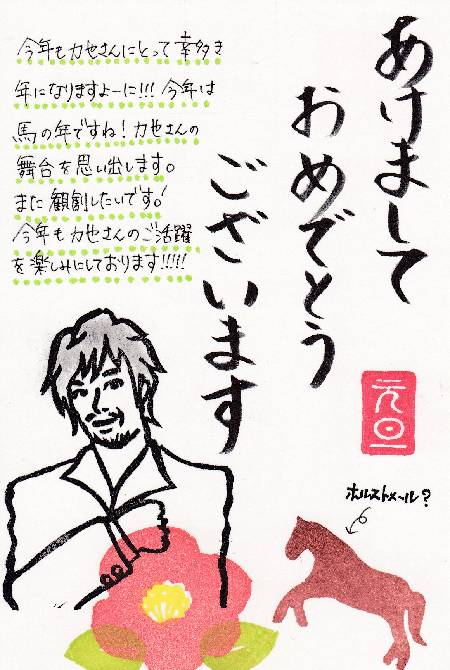 あけまして
おめでとう
ございます
元旦
今年も力也さんにとって幸多き
年になりますよーに!!! 今年は
馬の年ですね! 力也さんの
舞台を思い出します。
また観劇したいです。!
今年も力也さんのご活躍
を楽しみにしております!!!!!
ホルストメール?